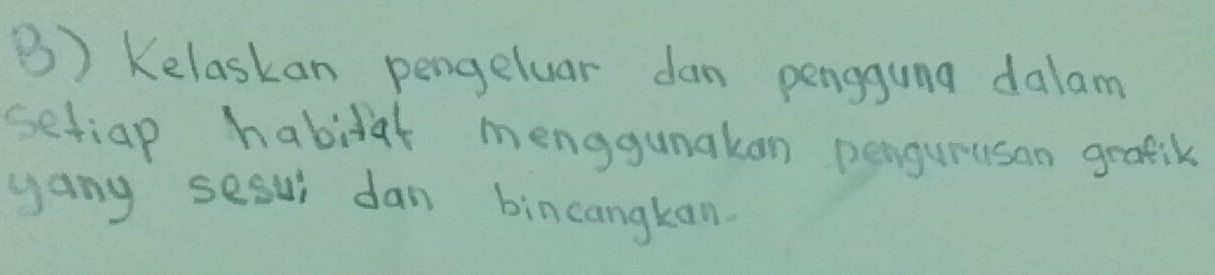 B) Kelaskan pengeluar dan pengguna dalam
setiap habitat menggunakan pengurusan grafik
yang sesui dan bincangkan.